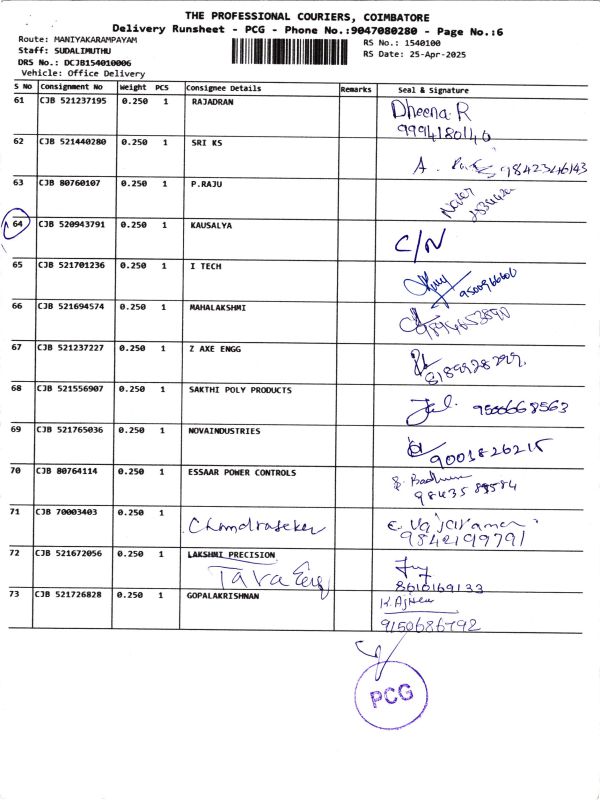 THE PROFESSIONAL COURIERS, COIMBATORE
Delivery Runsheet - PCG - Phone No.:9047080280 - Page No.:6
Route: MANIYAKARAMPAYAM RS No.: 1540100
Staff: SUDALIMUTHU RS Date: 25-Apr-2025
DRS No.: DCJB154010006
Vehicle: Office Delivery
S No Consignment No Weight PCS Consignee Details Remarks Seal & Signature
61 CJB 521237195 0.250 1 RAJADRAN Dheena.R
9994180140
62 CJB 521440280 0.250 1 SRI KS A. 9842346143
63 CJB 80760107 0.250 1 P.RAJU
64 CJB 520943791 0.250 1 KAUSALYA C/N
65 CJB 521701236 0.250 1 I TECH 9500966606
66 CJB 521694574 0.250 1 MAHALAKSHMI 9894653890
67 CJB 521237227 0.250 1 Z AXE ENGG 8189928799
68 CJB 521556907 0.250 1 SAKTHI POLY PRODUCTS Jal. 9500668563
69 CJB 521765036 0.250 1 NOVAINDUSTRIES 9001826215
70 CJB 80764114 0.250 1 ESSAAR POWER CONTROLS
71 CJB 70003403 0.250 1 Chandraseker E. Vajjayaraman
9842199791
72 CJB 521672056 0.250 1 LAKSHMI PRECISION
Tara Eng 8610169133
73 CJB 521726828 0.250 1 GOPALAKRISHNAN
9150686792
PCG